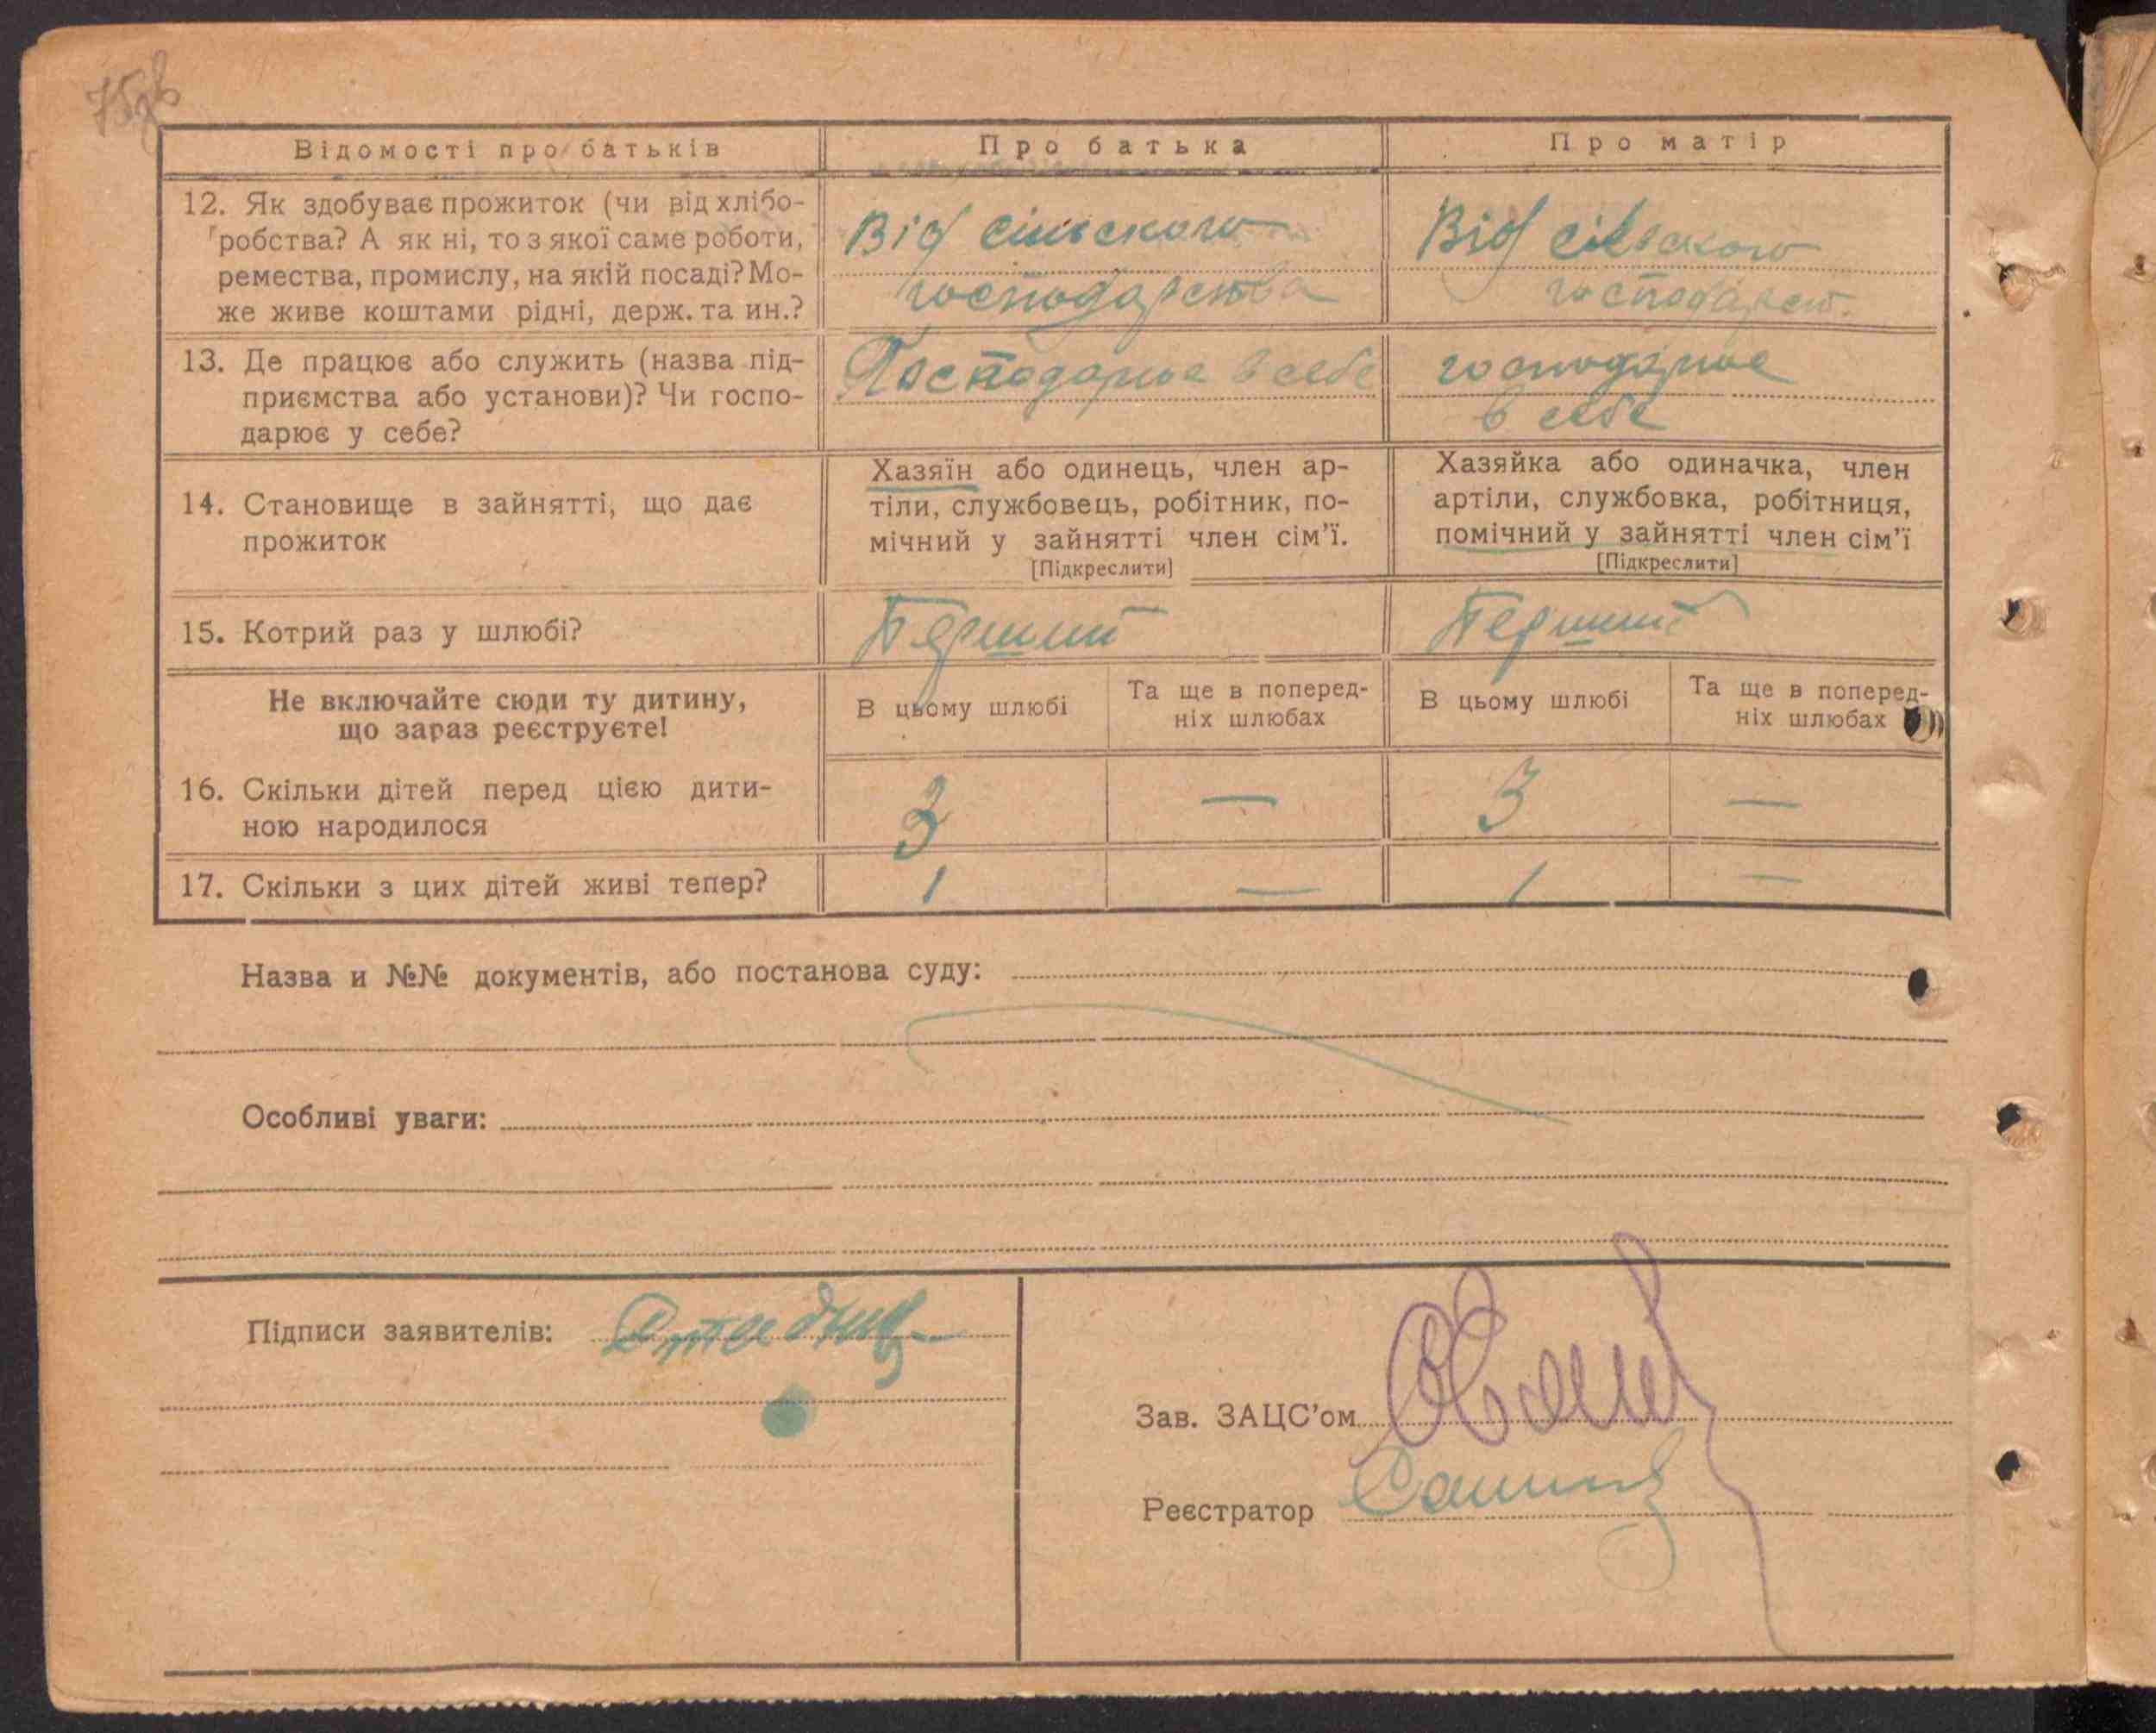 75зв
Відомості про батьків
Про батька
Про матір
12. Як здобуває прожиток (чи від хлібо-
робства? А як ні, то з якої саме роботи,
ремества, промислу, на якій посаді? Мо-
же живе коштами рідні, держ. та ин.?
Від сільского
господарства
Від сільского
господарст.
13. Де працює або служить (назва під-
приємства або установи)? Чи госпо-
дарює у себе?
Господарює в себе
господарює
в себе
14. Становище в зайнятті, що дає
прожиток
Хазяїн або одинець, член ар-
тіли, службовець, робітник, по-
мічний у зайнятті член сім'ї.
[Підкреслити]
Хазяйка або одиначка, член
артіли, службовка, робітниця,
помічний у зайнятті член сім'ї
[Підкреслити]
15. Котрий раз у шлюбі?
Перший
Перший
Не включайте сюди ту дитину,
що зараз реєструєте!
В цьому шлюбі
Та ще в поперед-
ніх шлюбах
В цьому шлюбі
Та ще в поперед-
ніх шлюбах
16. Скільки дітей перед цією дити-
ною народилося
3 — 3 —
17. Скільки з цих дітей живі тепер?
1 — 1 —
Назва и №№ документів, або постанова суду:
Особливі уваги:
Підписи заявителів:
Зав. ЗАЦС'ом
Реєстратор